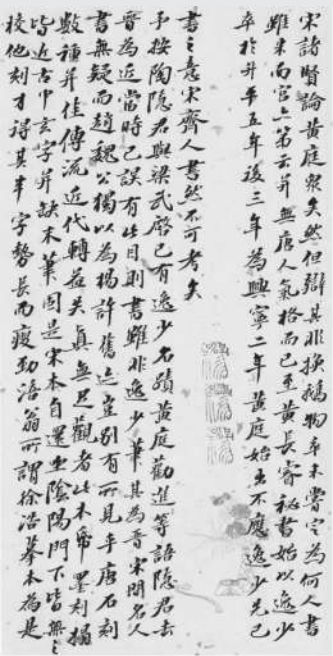 宋諸賢論黃庭衆矣然但辯其非換鵝物卒未嘗定為何人書
雖米南宮亦第云并無唐人氣格而已至黃長睿秘書始以逸少
卒於升平五年後三年為興寧二年黃庭始出不應逸少先已
書之意宋齊人書然不可考矣
予按陶隱君與梁武啓已有逸少名蹟黃庭勸進等語隱君去
晉為近當時已誤有此目則書雖非逸少筆其為晉宋間名人
書無疑而趙魏公獨以為楊許舊迹豈別有所見乎唐石刻
數種并佳傳流近代轉益失真無足觀者此本帋墨刻搨
皆近古中玄字并缺末筆固是宋本自還坐陰陽門下皆無之
校他刻才得其半字勢長而瘦勁涪翁所謂徐浩摹本為是